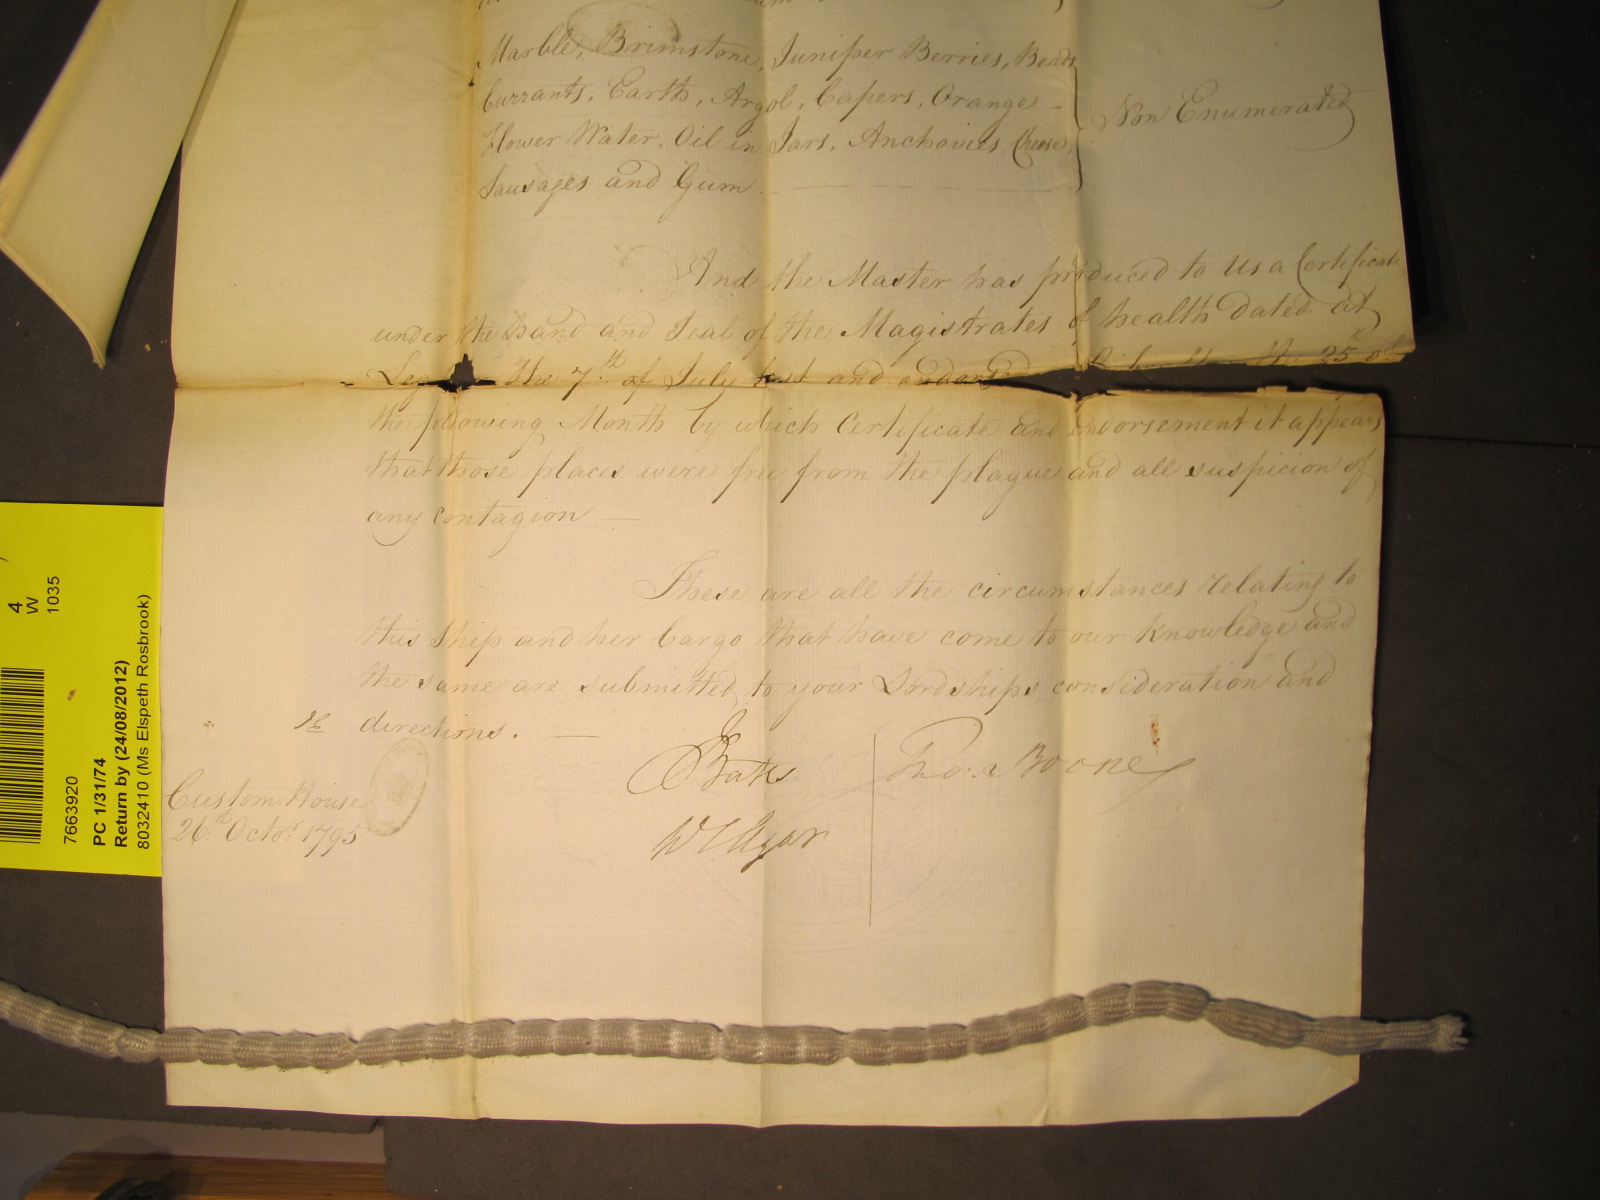 Marble, Brimstone, Juniper Berries, Beads
Currants, Earth, Argol, Capers, Orange -
Flower Water, Oil in Jars, Anchovies, Cheese,
Sausages and Gum
Non Enumerated
And the Master has produced to Us a Certificate
under the hand and Seal of the Magistrates of health dated at
the 7th of July last and the 25th of
the following Month by which Certificate and Endorsement it appears
that those places were free from the plague and all suspicion of
any contagion —
These are all the circumstances relating to
this Ship and her Cargo that have come to our knowledge and
the same are submitted to your Lordships consideration and
directions. —
J Bates
Tho: Boone
W Agar
Custom House
26th Octor 1795
4
W
1035
7663920
PC 1/31/74
Return by (24/08/2012)
8032410 (Ms Elspeth Rosbrook)